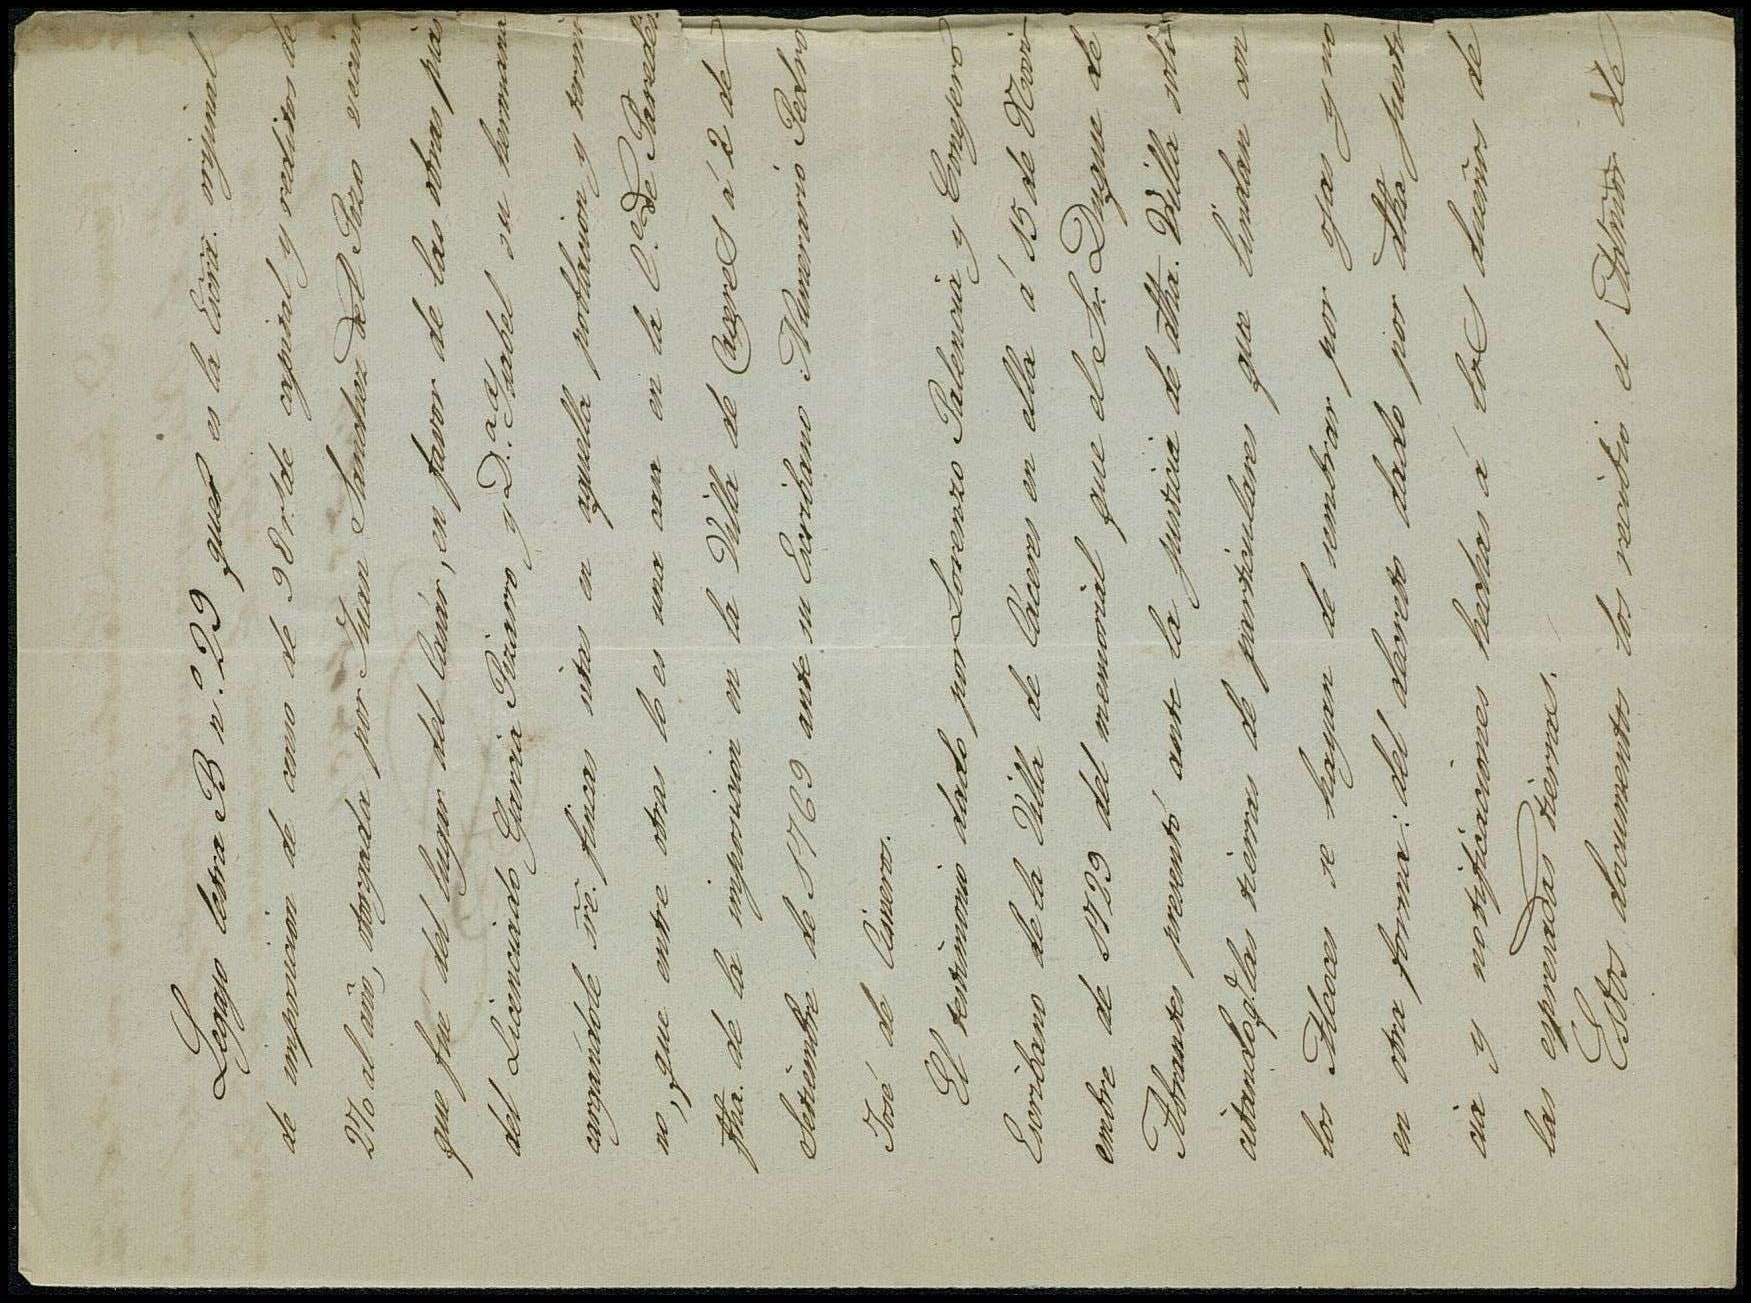 Legajo letra B n.º 29 que es la Escra. orijinal
de imposicion de censo de 98 r.s de capital y reditos de
2 % al año, otorgada por Juan Sanchez del Pozo vecino
que fue del lugar del Casar, en favor de las obras pias
del Licenciado Garcia Pizarro, y D.ª Isabel su hermana
cargandole sre. fincas sitas en aquella poblacion y termi
no, que entre otras lo es una casa en la C. de Paredes
fha. de la imposicion en la Villa de Caceres á 2 de
Setiembre de 1769 ante su Escribano Numerario Pedro
José de Cisneros.
El testimonio dado por Lorenzo Palencia y Consejero
Escribano de la Villa de Cáceres en ella á 15 de Novi
embre de 1729 del memorial que el Sr. Duque de
Abrantes presentó ante la justicia de dtha. Villa soli
citando q.e las tierras de particulares que lindan con
las se hayan de sembrar por oja y no
en otra forma: del decreto dado por dtha justi
cia y notificaciones hechas á los dueños de
las espresadas tierras.
Estos documentos los recibio el de